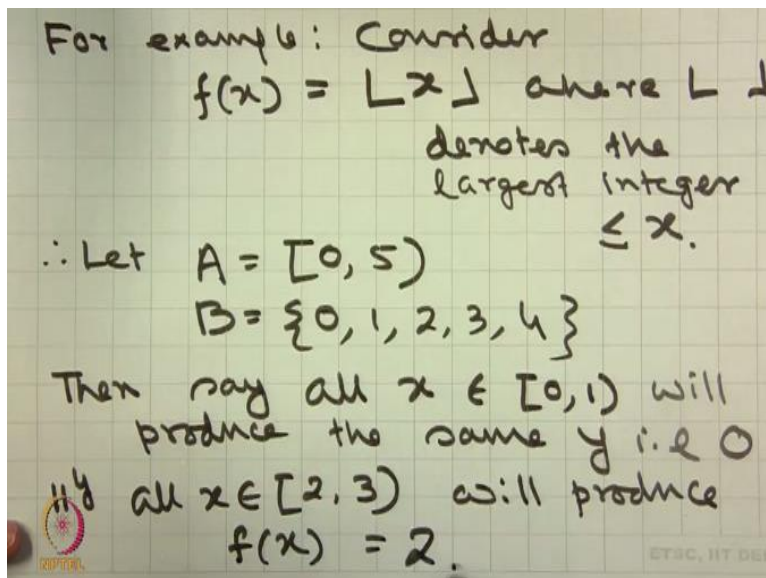 For example: Consider
f(x) = ⌊x⌋ where ⌊ ⌋
denotes the
largest integer
≤ x.
∴ Let A = [0, 5)
B = {0, 1, 2, 3, 4}
Then say all x ∈ [0,1) will
produce the same y i.e 0
||ly all x ∈ [2, 3) will produce
f(x) = 2.
NPTEL
ETSC, IIT DEL